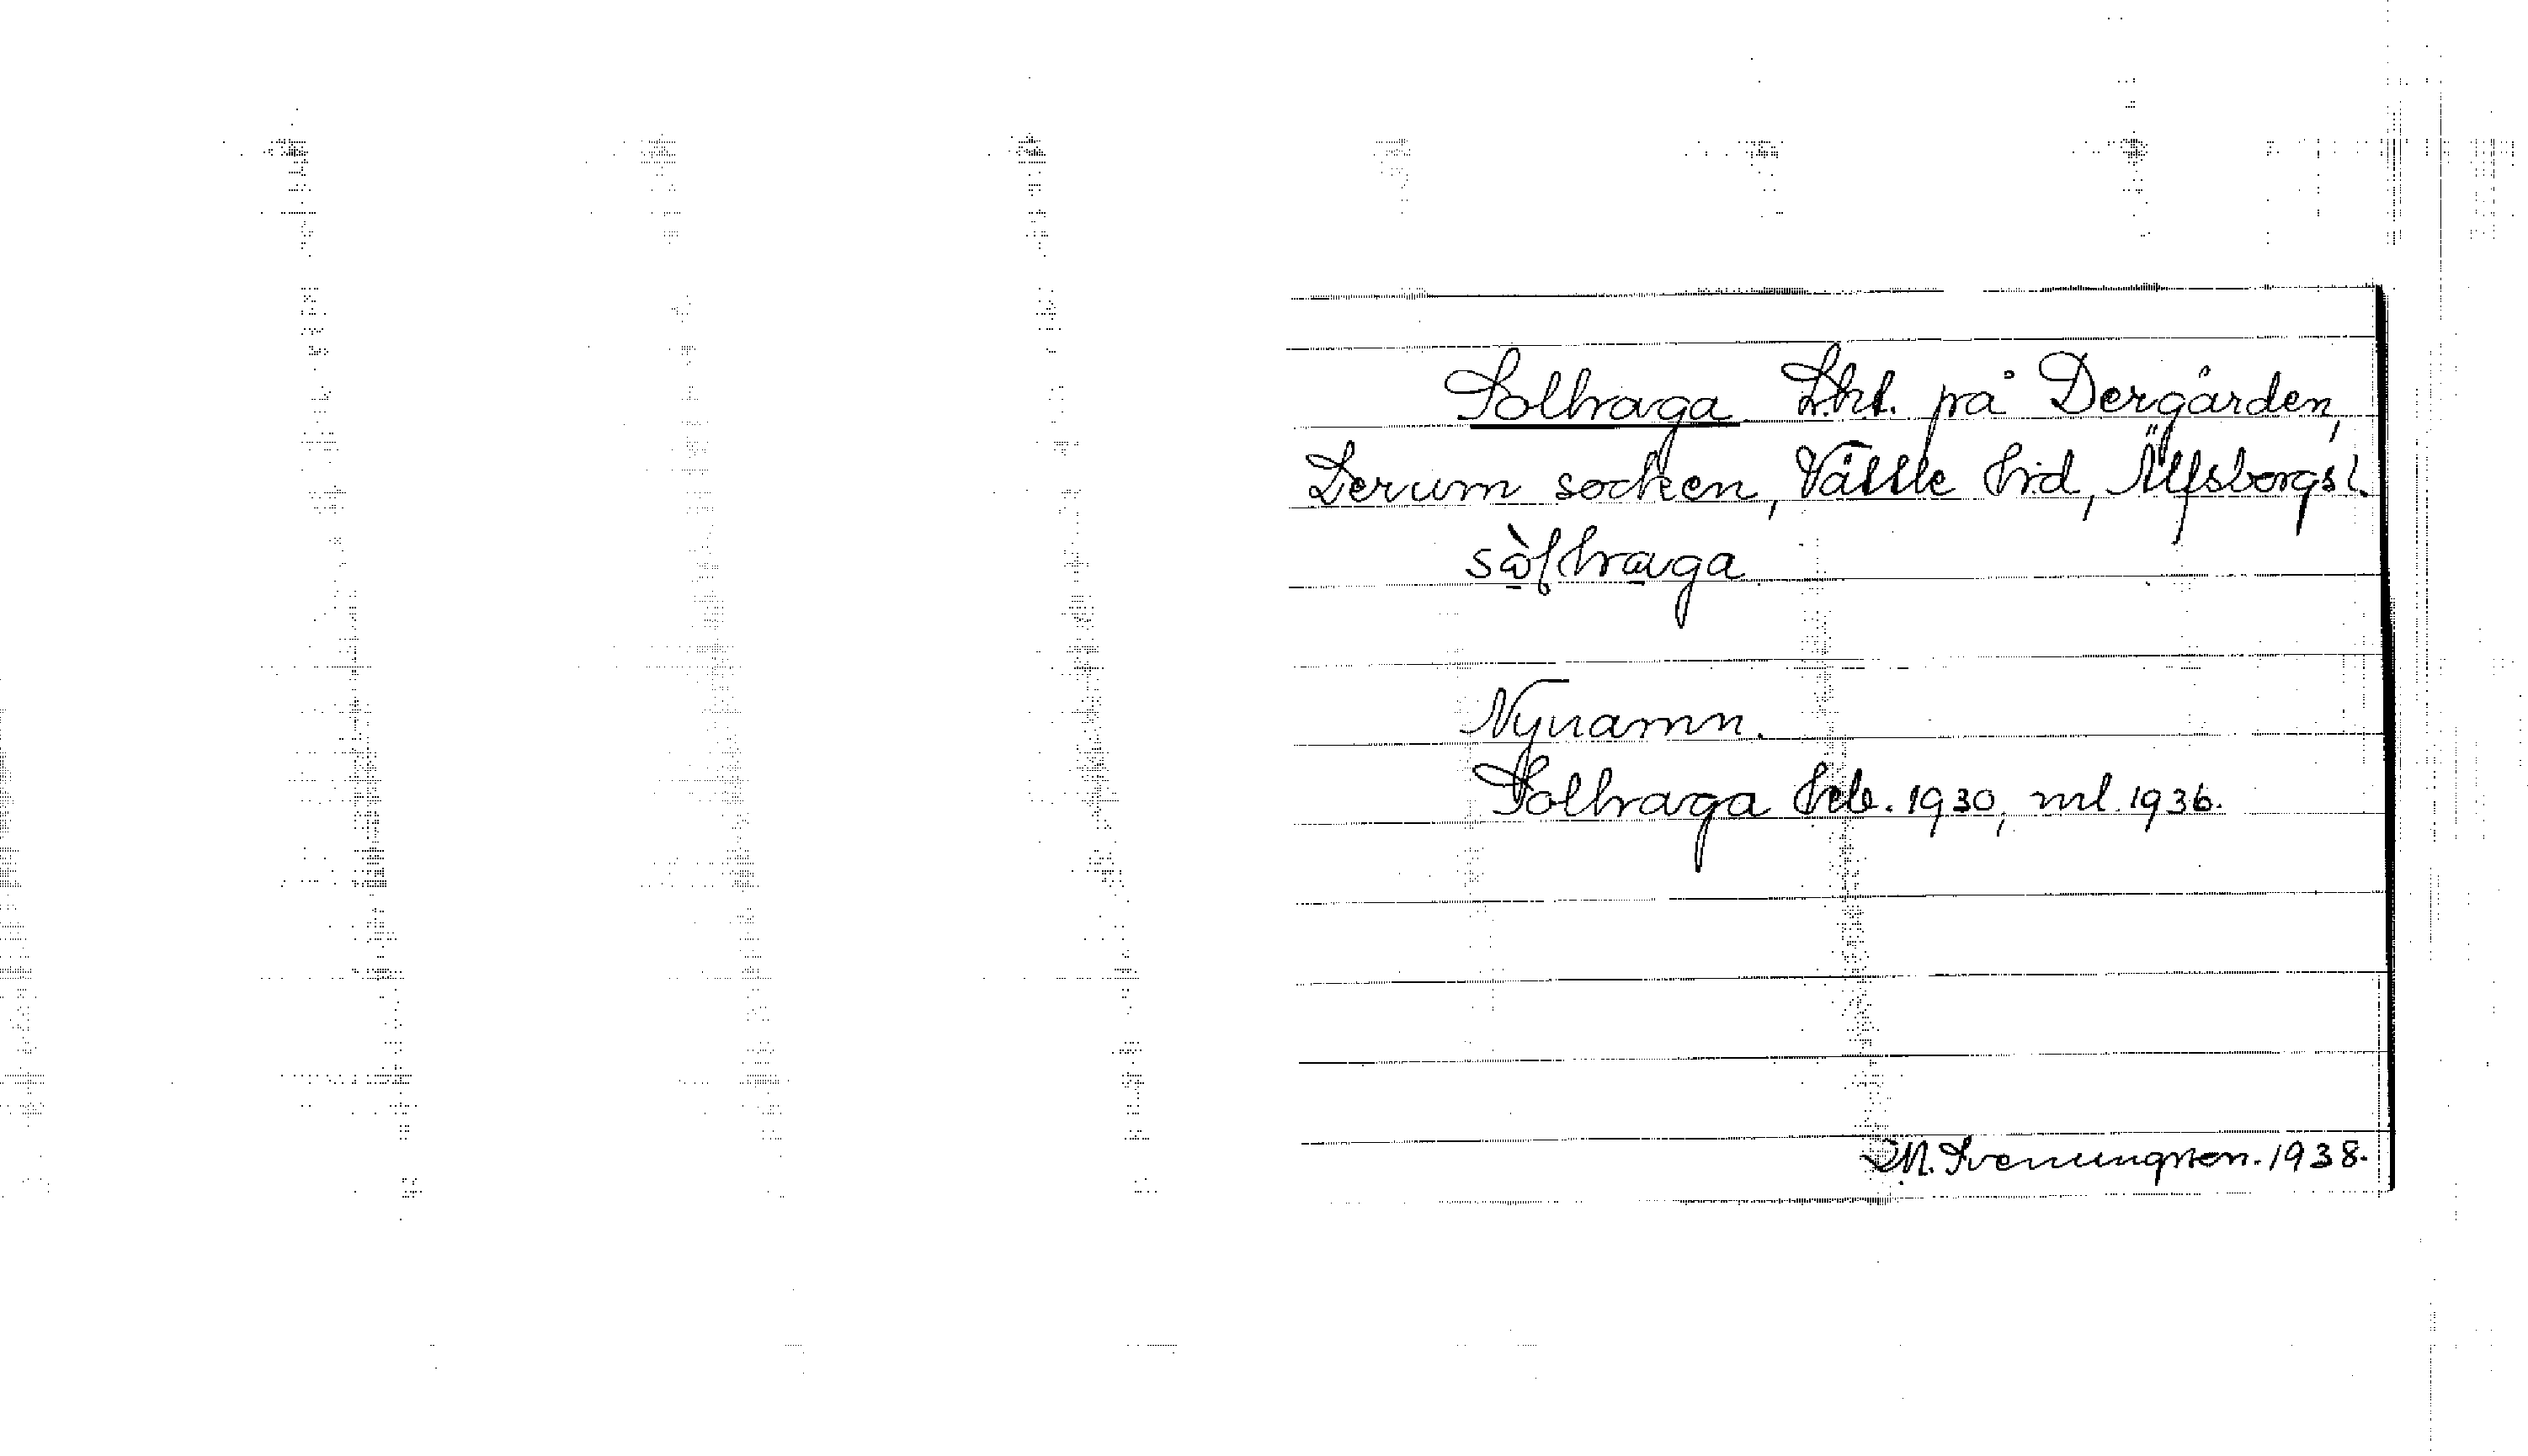 Solhaga. Lht. på Dergården,
Lerum socken, Vättle hrd, Älfsborgs l.
sòlhaga
Nynamn.
Solhaga 1930, ml. 1936.
M. Svenungsson. 1938.